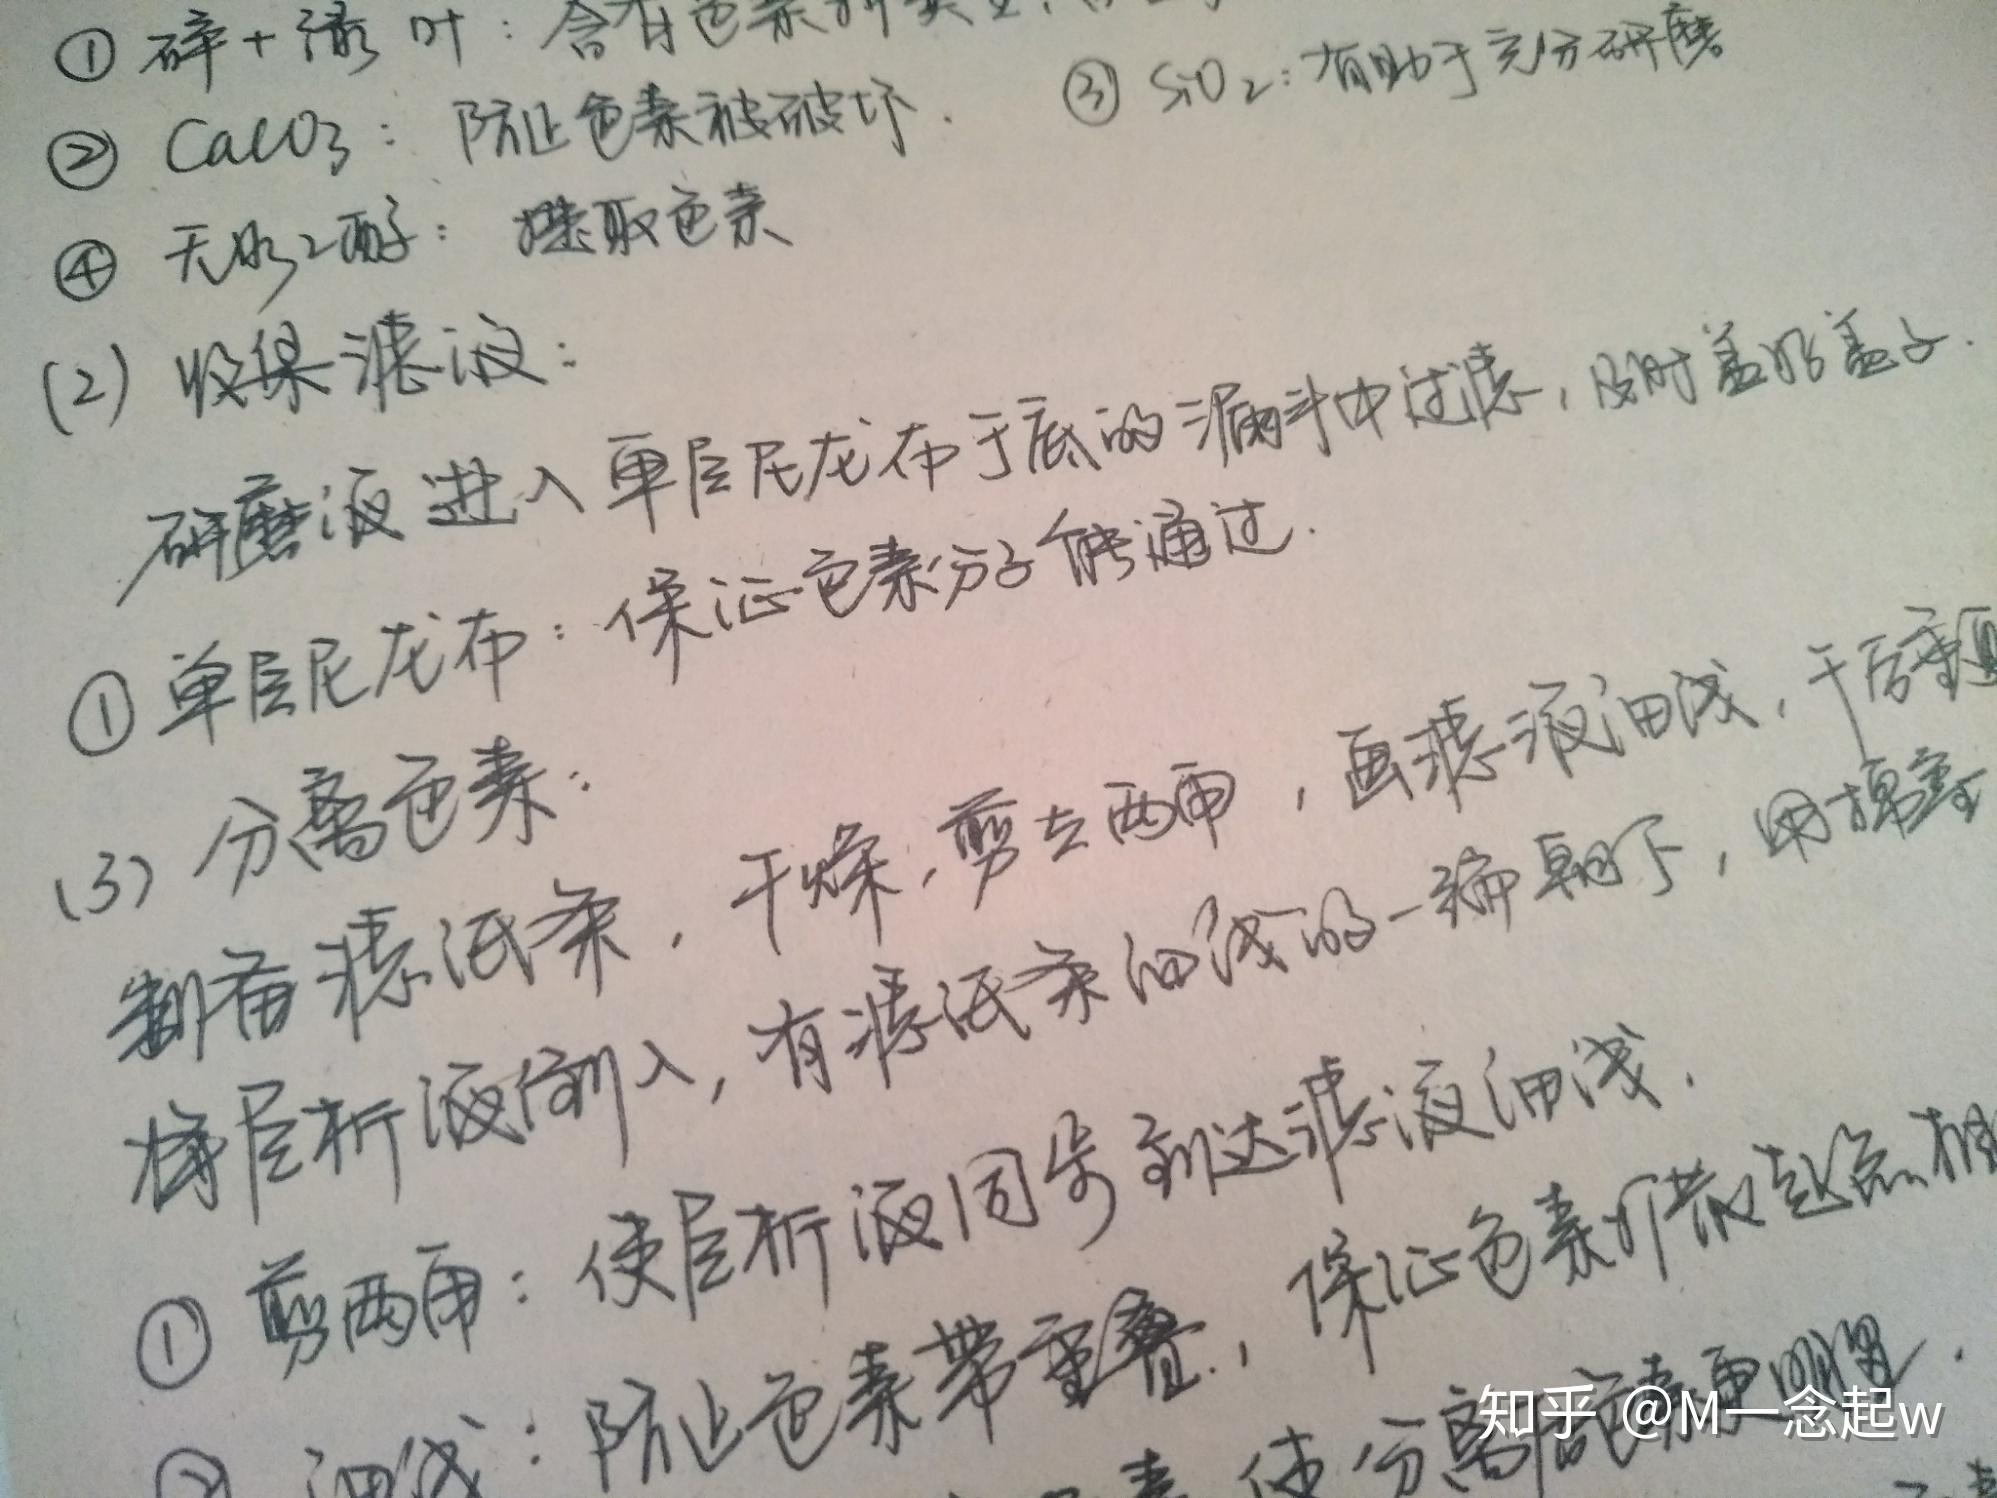 ① 碎+绿叶：含有色素
② CaCO3：防止色素被破坏. ③ SiO2：有助于充分研磨
④ 无水乙醇：提取色素
(2) 收集滤液：
研磨液进入单层尼龙布于底的漏斗中过滤，及时盖好盖子.
① 单层尼龙布：保证色素分子能通过.
(3) 分离色素：
制备滤纸条，干燥，剪去两角，画滤液细线，干后重画
将层析液倒入，有滤纸条细线的一端朝下，用棉塞
① 剪两角：使层析液同步到达滤液细线.
② 细线：防止色素带重叠，保证色素扩散起点相
素 使分离色素更明显.
知乎 @M一念起w